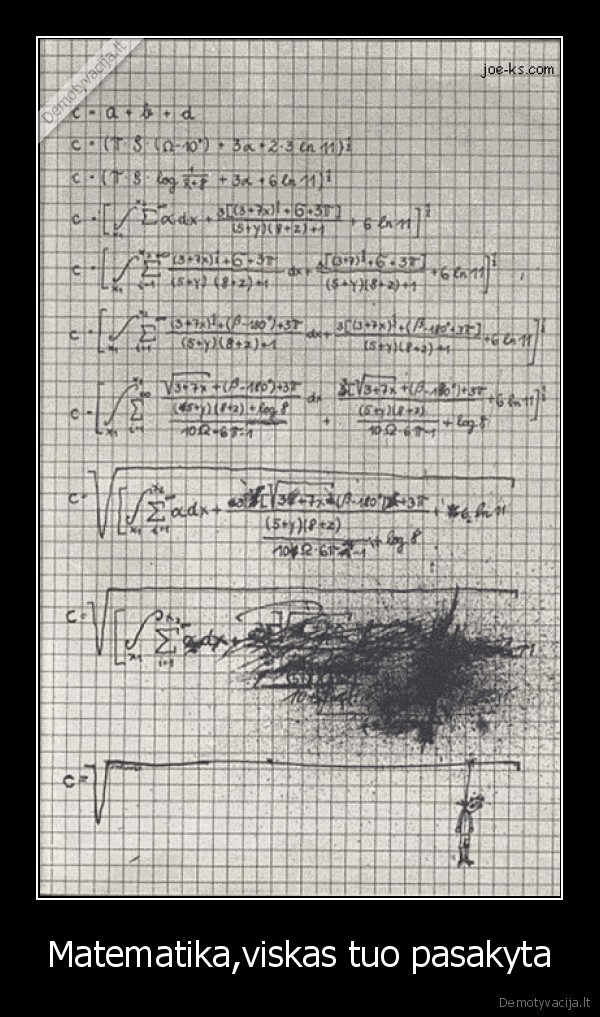 Demotyvacija.lt
joe-ks.com
c = a + b + d
c = (T · S · (Ω-10°) + 3α + 2·3 ln 11)½
c = (T · S · log + 3α + 6 ln 11)½
c = [∫ Σ α dx + 3[(3+7x)½ + 6 + 3π] / (5+y)(8+z)+1 + 6 ln 11]½
c = [∫ Σ (3+7x)½ + 6 + 3π / (5+y)(8+z)+1 dx + 3[(3+7)½ + 6 + 3π] / (5+y)(8+z)+1 + 6 ln 11]½
c = [∫ Σ (3+7x)½ + (β-180°) + 3π / (5+y)(8+z)+1 dx + 3[(3+7x)½ + (β-180°+3π] / (5+y)(8+z)+1 + 6 ln 11]½
c = [∫ Σ √3+7x + (β-180°) + 3π / (5+y)(8+z) + log 8 / 10Ω-6π-1 dx + 3[√3+7x + (β-180°) + 3π / (5+y)(8+z) / 10Ω·6π-1 + log 8 + 6 ln 11]½
c = √[∫ Σ α dx + √3+7x (β-180°) + 3π / (5+y)(8+z) / 10Ω·6π-1 + log 8 + 6 ln 11
c = √[∫ Σ dx +
c = √
Matematika,viskas tuo pasakyta
Demotyvacija.lt